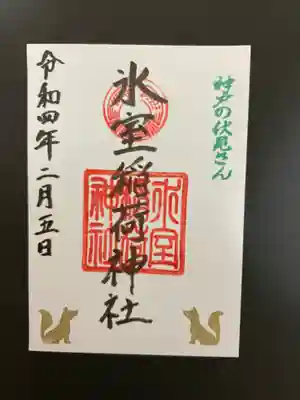 神戸の伏見さん
氷室稲荷神社
氷室
神社
令和四年二月五日